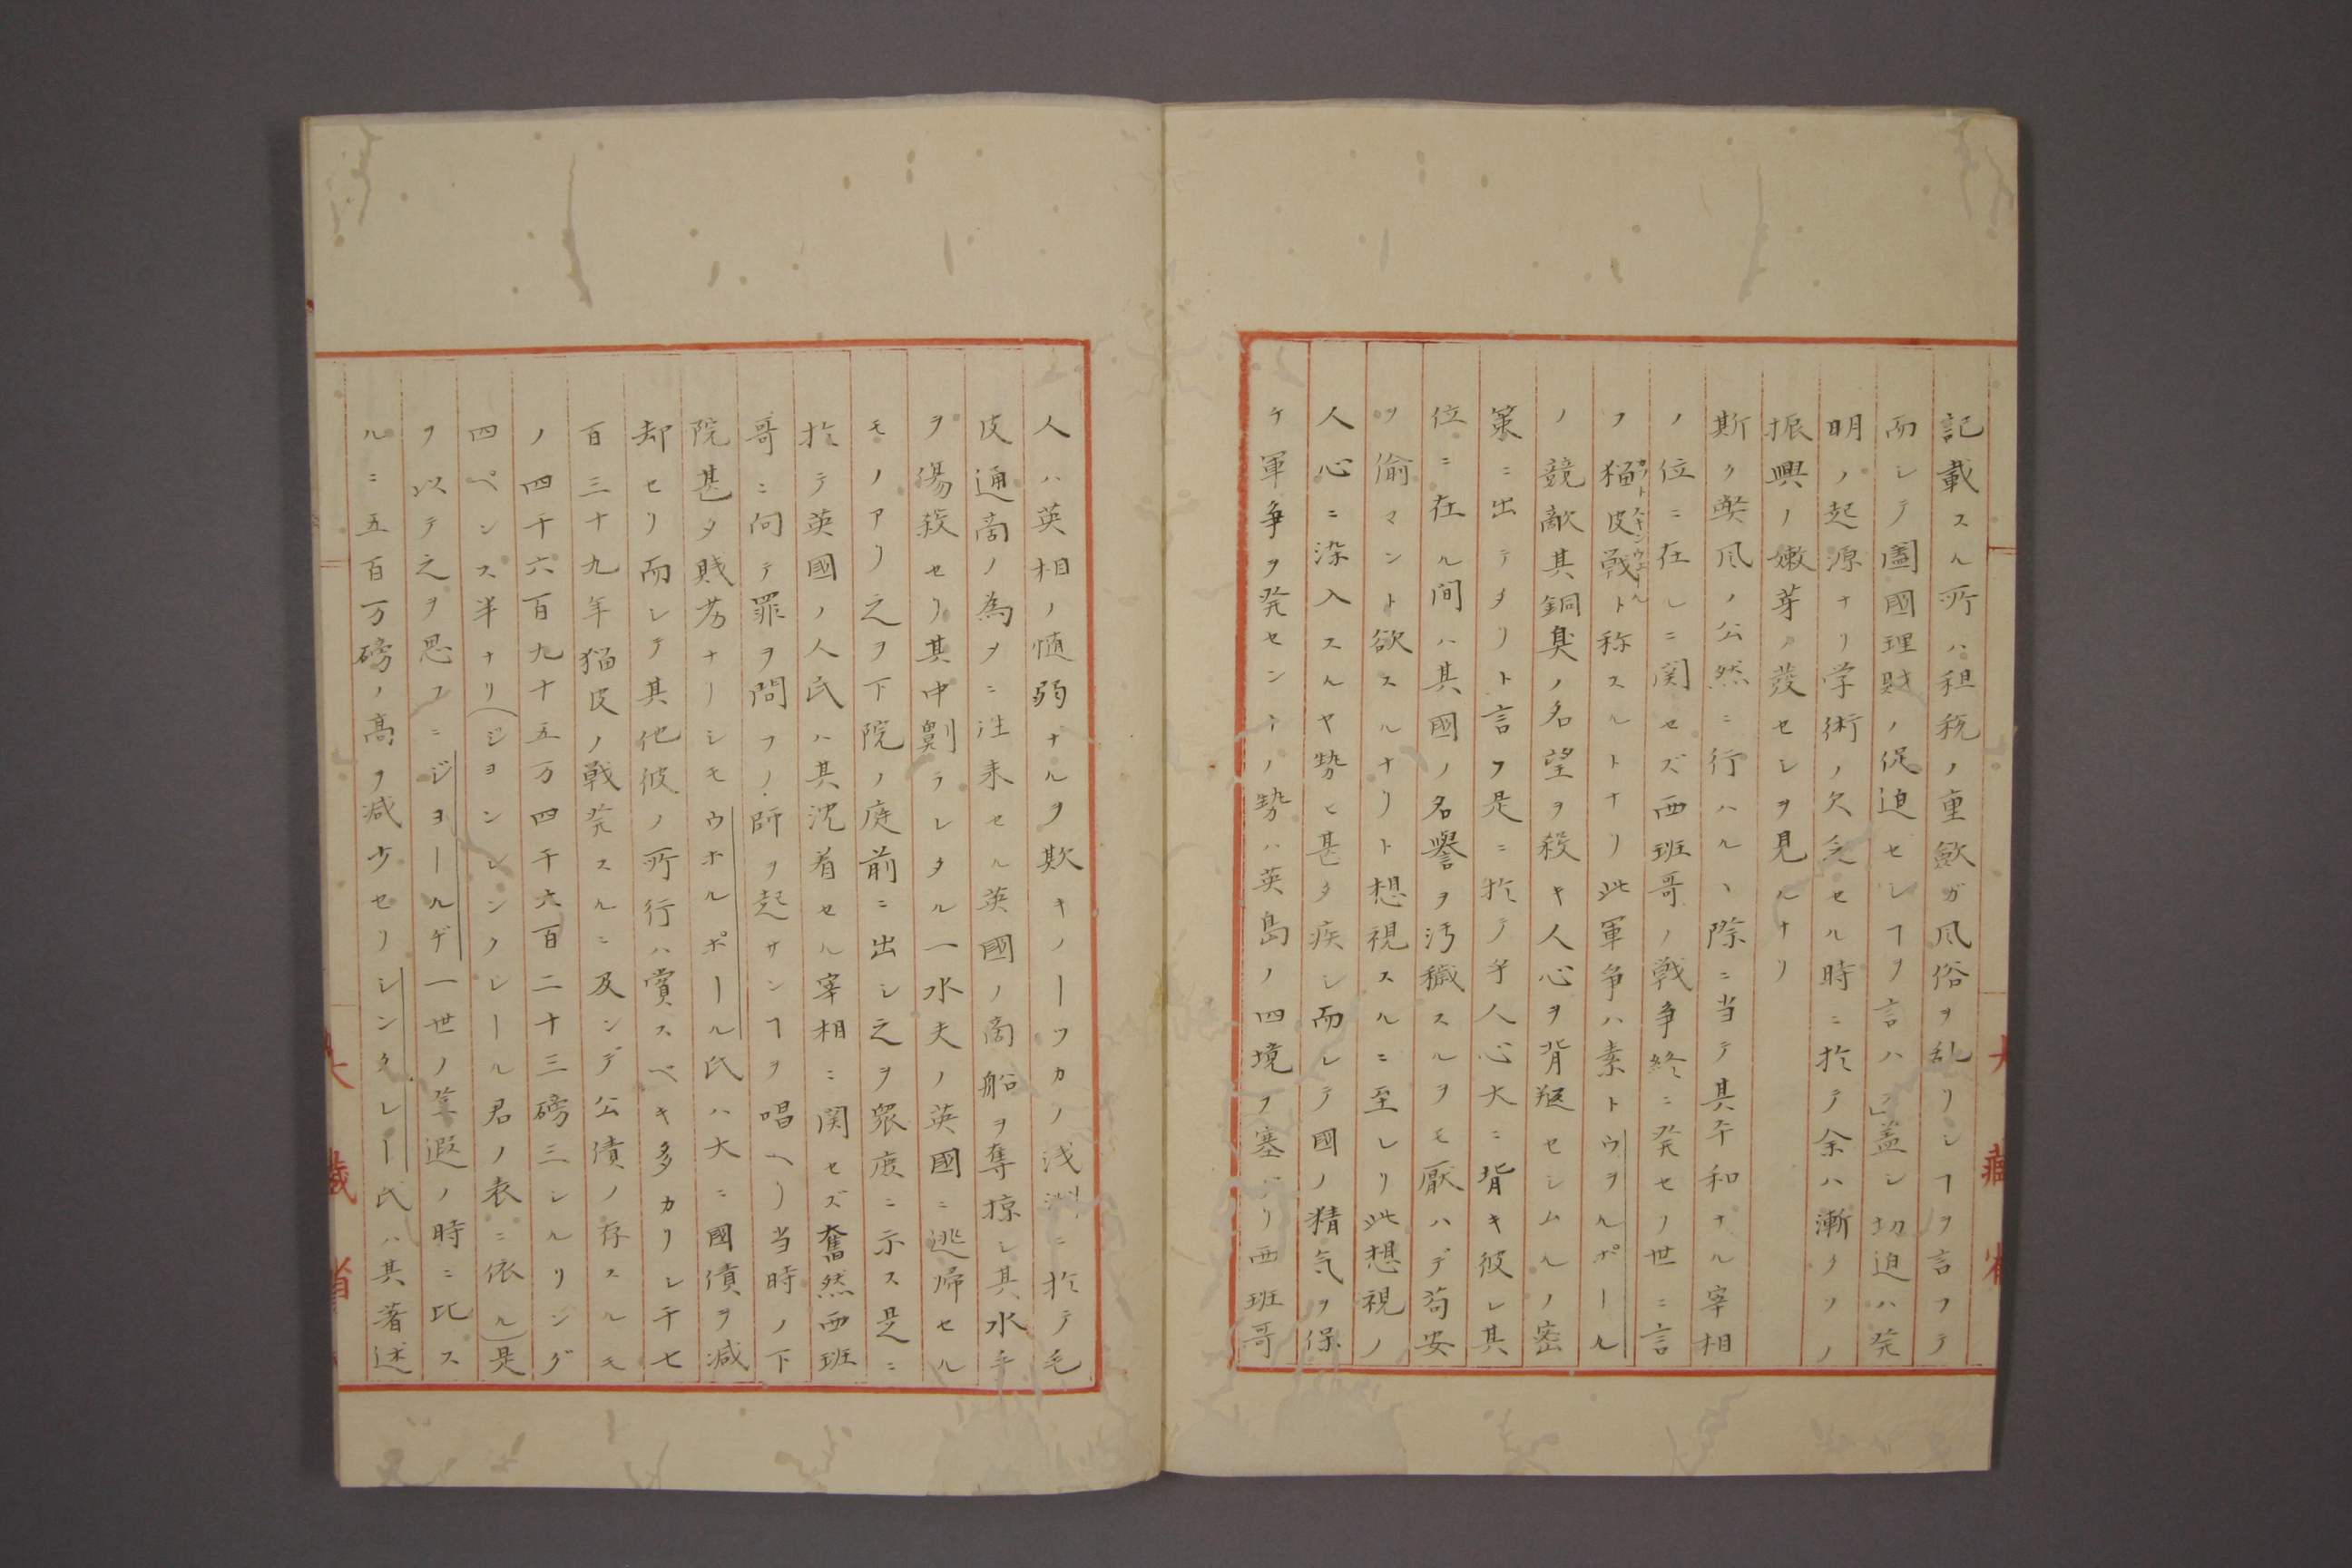 記載スル所ハ租税ノ重歛ガ风俗ヲ乱リシヿヲ言フテ
而シテ闔國理財ノ促迫セシヿヲ言ハ」蓋シ切迫ハ発
明ノ起源ナリ学術ノ欠乏セル時ニ於テ余ハ漸クソノ
振興ノ嫩芽ヲ茂セシヲ見ルナリ
斯ク弊风ノ公然ニ行ハルヽ際ニ当テ其平和ナル宰相
ノ位ニ在シニ関セズ西班哥ノ戦争終ニ発セノ世ニ言
フ猫皮戦ト称スルトナリ此軍争ハ素トウヲルポール
ノ競敵其銅臭ノ名望ヲ殺キ人心ヲ背叛セシムルノ密
策ニ出テタリト言フ是ニ於テ乎人心大ニ背キ彼レ其
位ニ在ル间ハ其國ノ名譽ヲ汚穢スルヲモ厭ハデ苟安
ヲ偷マント欲スルナリト想視スルニ至レリ此想視ノ
人心ニ染入スルヤ勢ヒ甚タ疾シ而レテ國ノ精気ヲ保
チ軍争ヲ発セントノ勢ハ英島ノ四境ヲ塞ハリ西班哥
大藏省
人ハ英相ノ惰弱ナルヲ欺キノーツカノ浅洲ニ於テ毛
皮通商ノ為メニ往来セル英國ノ商船ヲ奪掠シ其水手
ヲ傷殺セリ其中劓ラレタル一水夫ノ英國ニ逃帰セル
モノアリ之ヲ下院ノ庭前ニ出シ之ヲ衆庶ニ示ス是ニ
於テ英國ノ人民ハ其沈着セル宰相ニ関セズ奮然西班
哥ニ向テ罪ヲ問フノ師ヲ起サンヿヲ唱ヘリ当時ノ下
院甚タ賤劣ナーシモウホルポール氏ハ大ニ國債ヲ减
却セリ而レテ其他彼ノ所行ハ賞スベキ多カリレ千七
百三十九年猫皮ノ戦発スルニ及ンデ公債ノ存スルモ
ノ四千六百九十五万四千六百二十三磅三シルリング
四ペンス半ナリ(ジヨンシンクレール君ノ表ニ依ル)是
ヲ以テ之ヲ思フニジヨールヂ一世ノ登遐ノ時ニ比ス
ルニ五百万磅ノ髙ヲ减少セリシンクレー氏ハ其著述
大藏省